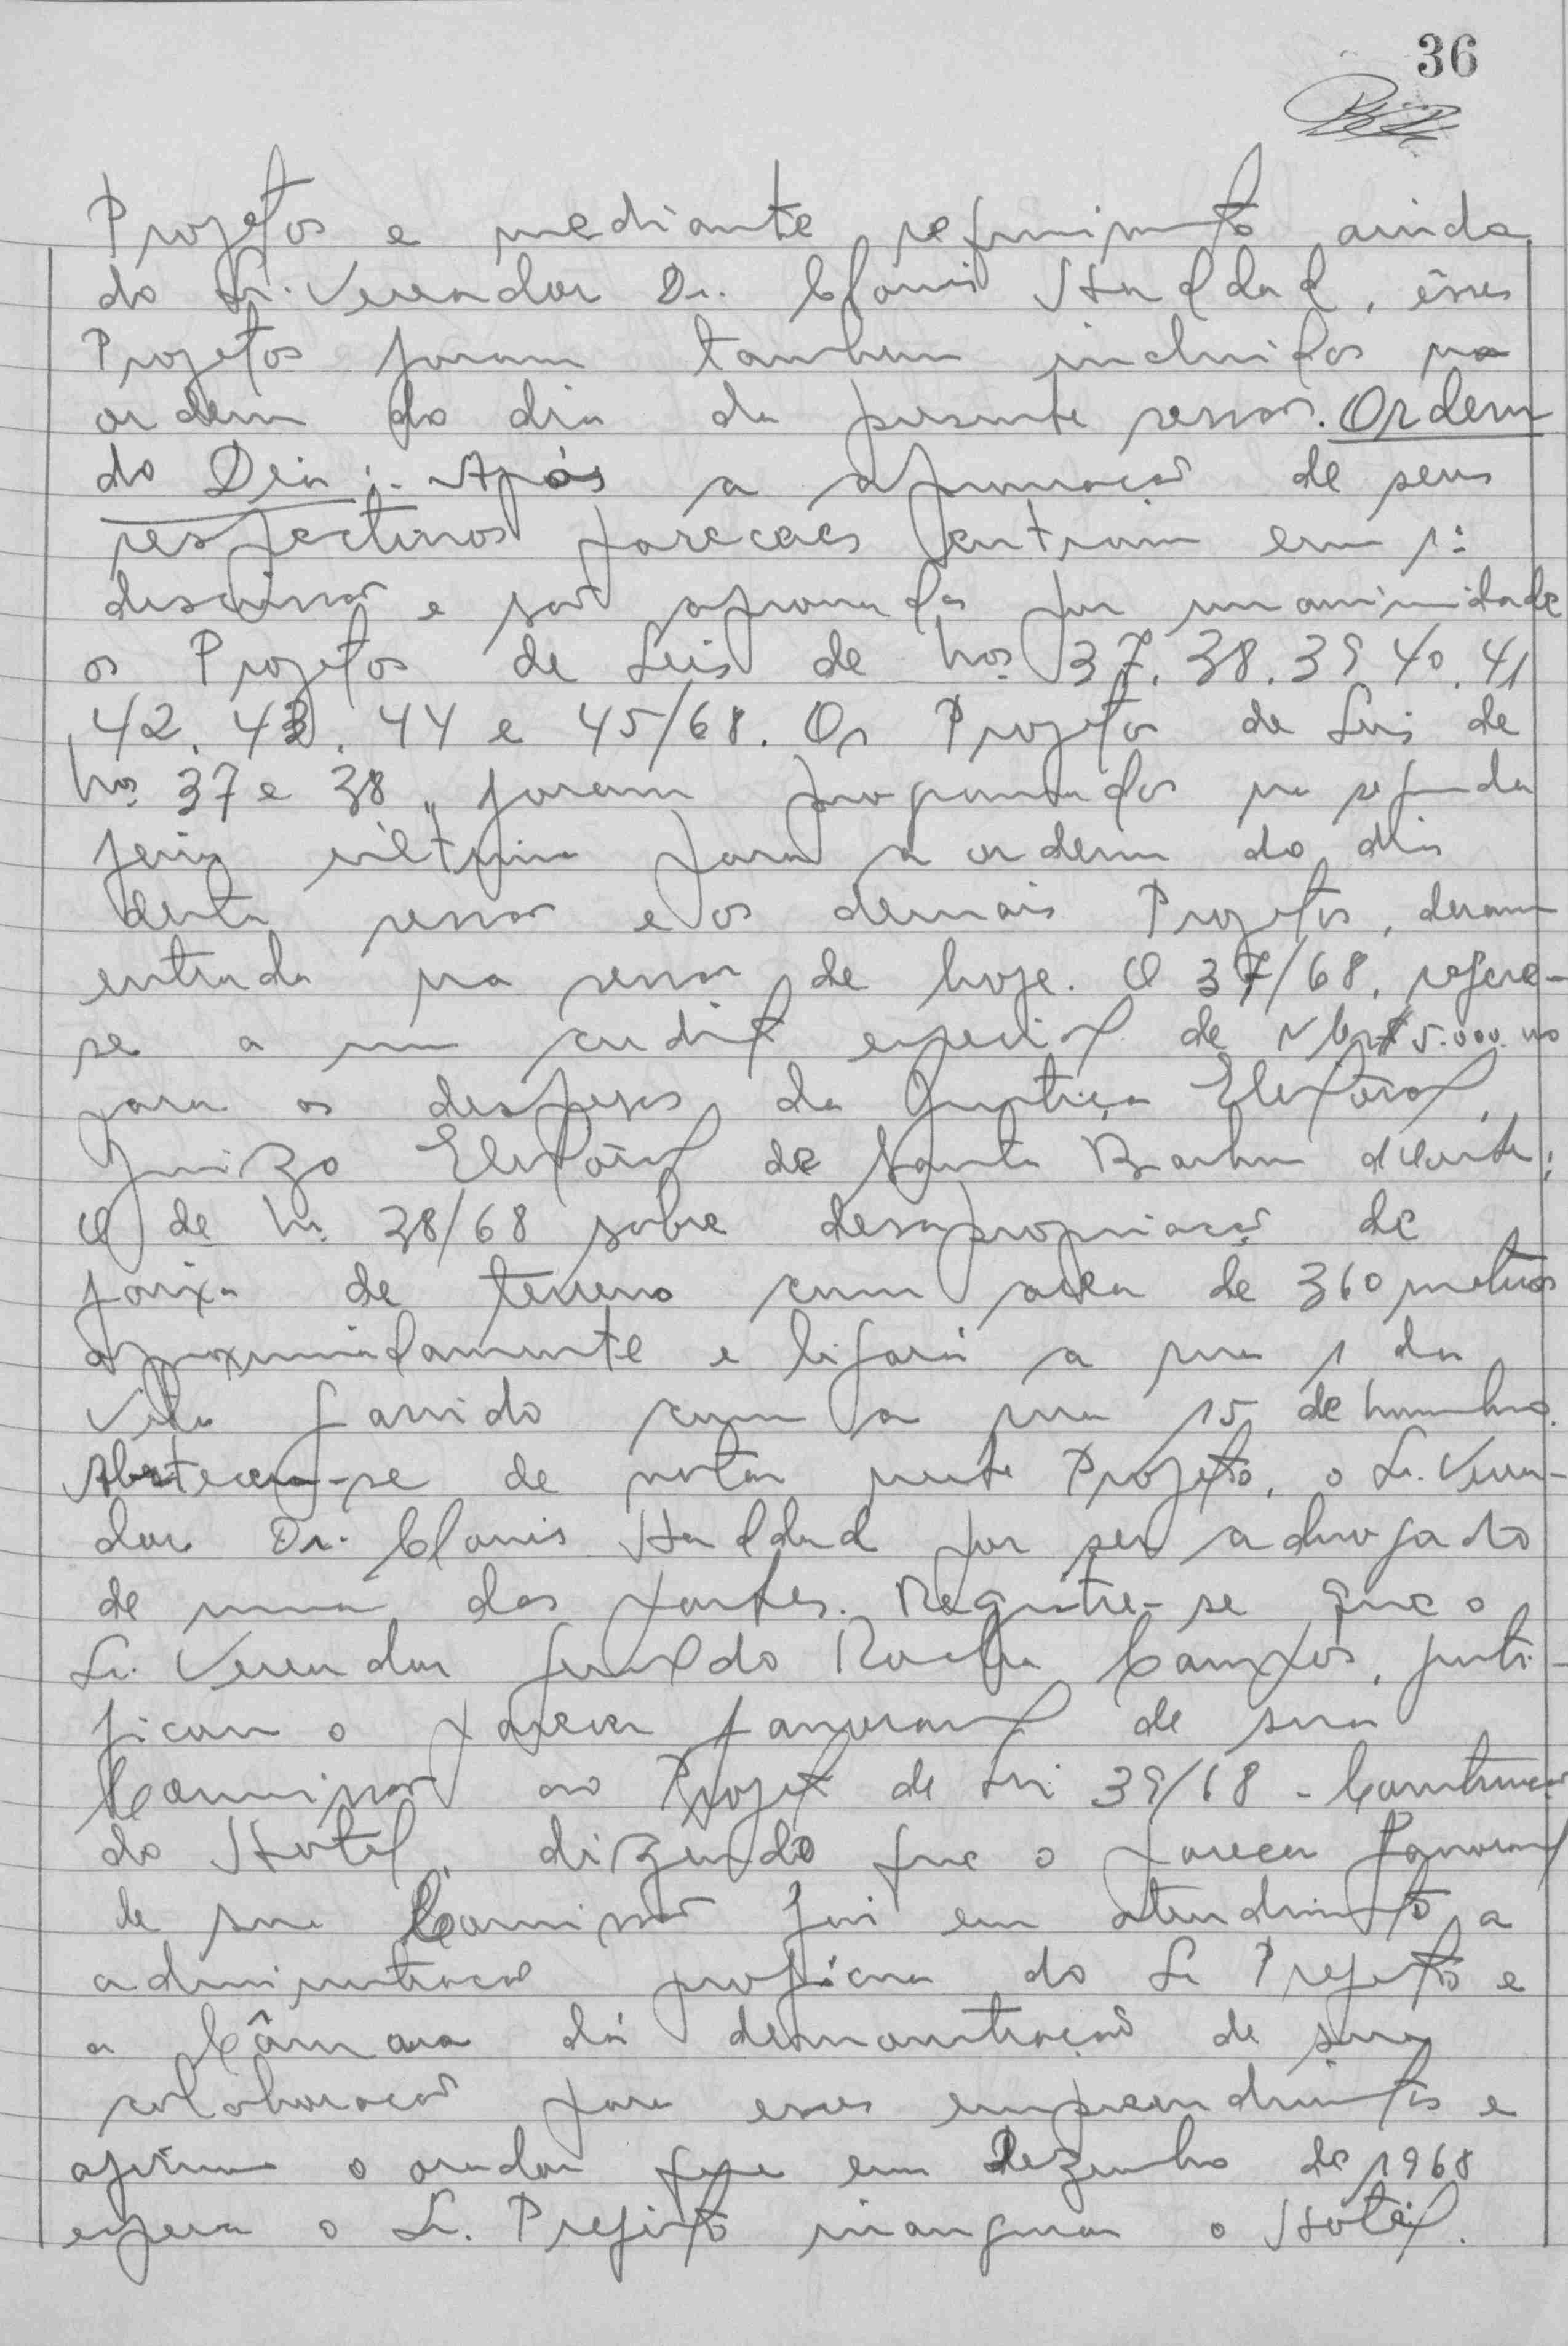 36
Projetos e mediante requerimento ainda
do Sr. Vereador Dr. Clovis Haddad, êsses
Projetos foram tambem incluidos na
ordem do dia da presente sessão. Ordem
do Dia:- Após a aprovação de seus
respectivos pareceres entram em 1ª
discussão e são aprovados por unanimidade
os Projetos de Leis de Nos. 37. 38. 39 40. 41
42. 43. 44 e 45/68. Os Projetos de Leis de
Nos. 37 e 38, foram programados na segunda
feira última para a ordem do dia
desta sessão e os demais Projetos, deram
entrada na sessão de hoje. O 37/68, refere-
se a um credito especial de NCr$ 5.000.00
para as despesas da Justiça Eleitoral,
Juizo Eleitoral de Santa Barbara d'Oeste;
O de No. 38/68 sobre desapropriação de
faixa de terreno com area de 360 metros
aproximadamente e ligará a rua 1 da
Vila Garrido com a rua 15 de Novembro.
Absteceu-se de votar neste Projeto, o Sr. Verea-
dor Dr. Clovis Haddad por ser advogado
de uma das partes. Registre-se que o
Sr. Vereador Geraldo Rocha Campos, justi-
ficou o parecer favoravel de sua
Comissão ao Projeto de Lei 39/68 - Construção
do Hotel, dizendo que o parecer favoravel
de sua Comissão foi em atendimento a
administração profícua do Sr Prefeito e
a Câmara dá demonstração de sua
colaboração para esses empreendimentos e
afirma o orador que em Dezembro de 1968
espera o Sr. Prefeito inaugurar o Hotel.